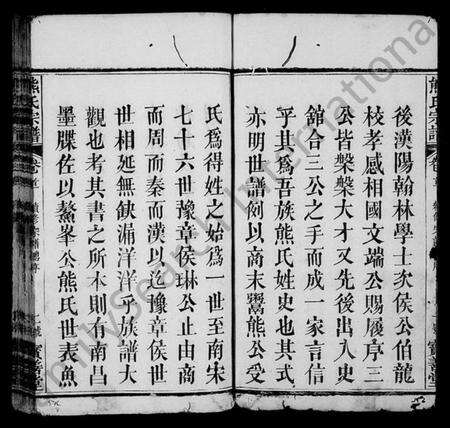 後漢陽翰林學士次侯公伯龍
枝孝感相國文端公賜履序三
公皆槃槃大才又先後出入史
舘合三公之手而成一家言信
乎其為吾族熊氏姓史也其式
亦明世譜例以商末鬻熊公受
氏為得姓之始為一世至南宋
七十六世豫章侯琳公止由商
而周而秦而漢以迄豫章侯世
世相延無缺漏洋洋乎族譜大
觀也考其書之所本則有南昌
墨牒佐以鰲峯公熊氏世表魚
熊氏宗譜
卷首
寶善堂
熊氏宗譜
FamilySearch International